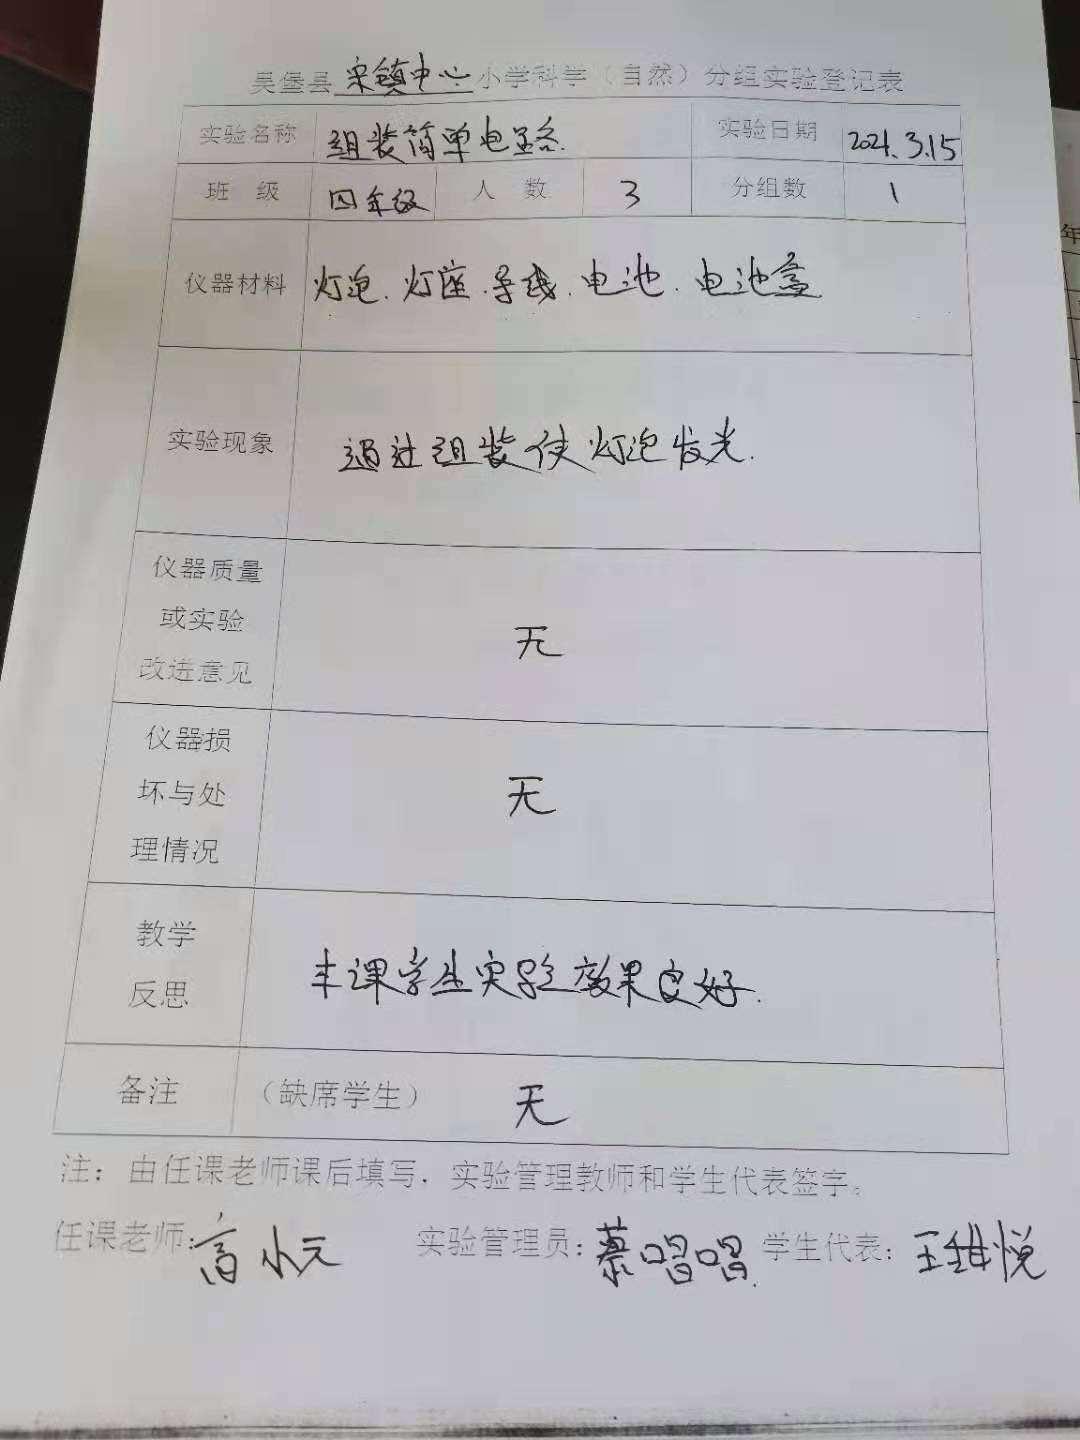 吴堡县宋镇中心小学科学（自然）分组实验登记表
实验名称 组装简单电路. 实验日期 2021.3.15
班 级 四年级 人 数 3 分组数 1
仪器材料 灯泡.灯座.导线.电池.电池盒
实验现象 通过组装使灯泡发光.
仪器质量
或实验
改进意见
无
仪器损
坏与处
理情况
无
教学
反思
本课学生实验效果良好.
备注 （缺席学生） 无
注：由任课老师课后填写，实验管理教师和学生代表签字。
任课老师:高小元 实验管理员:慕唱唱 学生代表:王甜悦
年